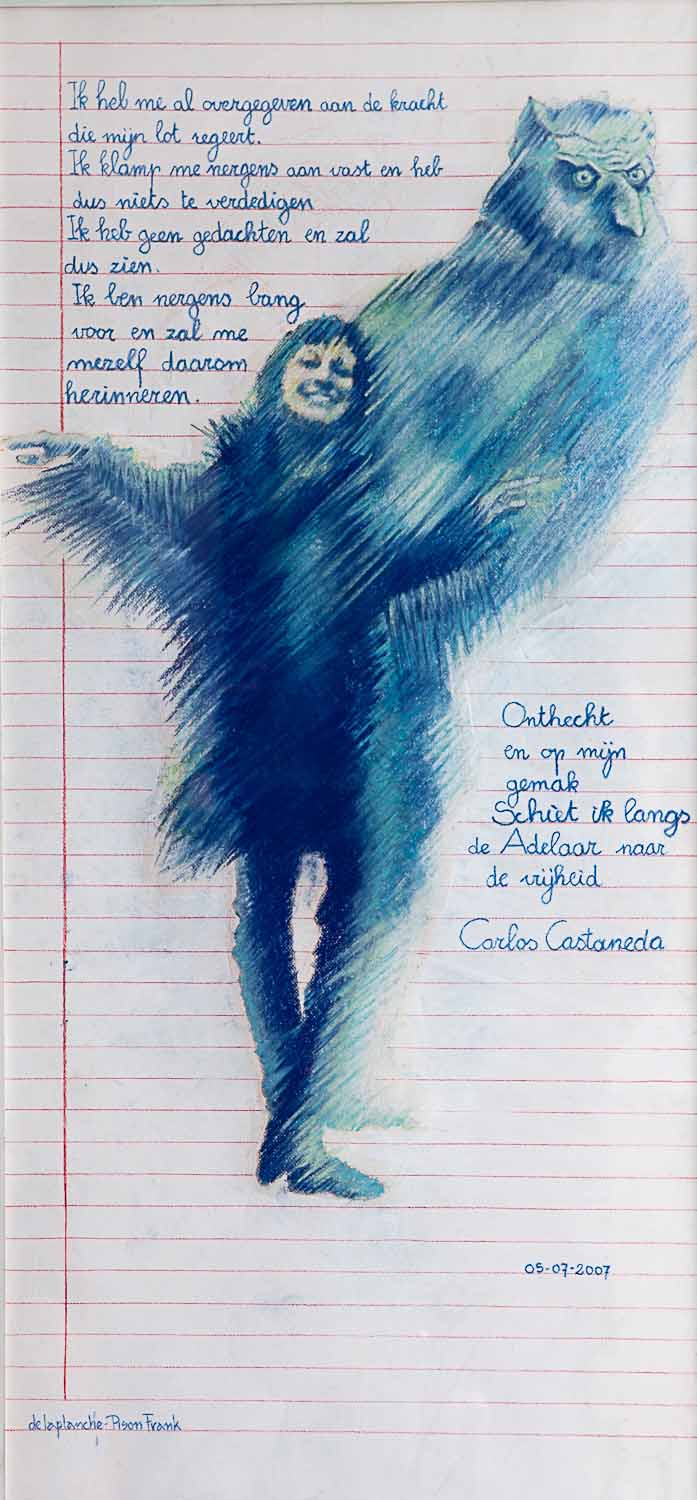 Ik heb me al overgegeven aan de kracht
die mijn lot regeert.
Ik klamp me nergens aan vast en heb
dus niets te verdedigen
Ik heb geen gedachten en zal
dus zien.
Ik ben nergens bang
voor en zal me
mezelf daarom
herinneren.
Onthecht
en op mijn
gemak
Schiet ik langs
de Adelaar naar
de vrijheid
Carlos Castaneda
05-07-2007
delaplanche-Pison Frank